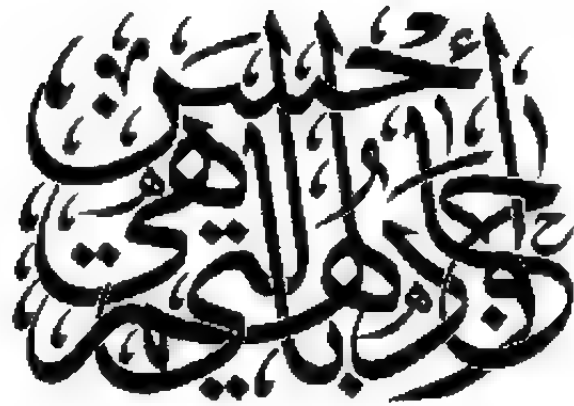 وجادلهم بالتي هي أحسن